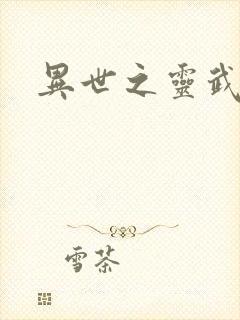 異世之靈武
雪茶